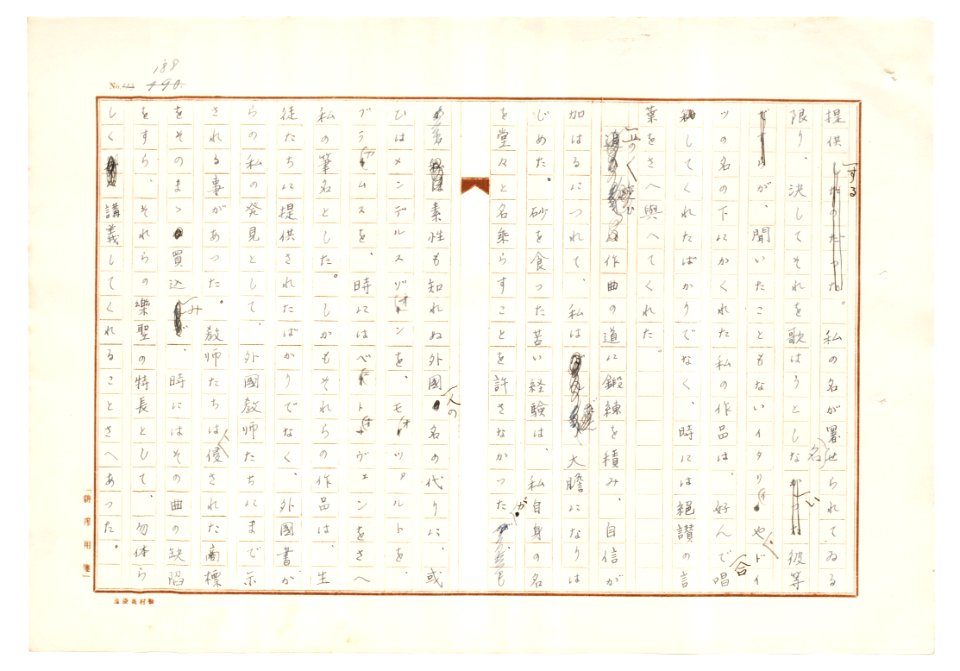 No. 188
提供する。私の名が署名せられてゐる
限り、決してそれを歌はうとしない彼等
が、聞いたこともないイタリイやドイ
ツの名の下にかくれた私の作品は、好んで合唱
してくれたばかりでなく、時には絶讃の言
葉をさへ與へてくれた。
作曲の道に鍛練を積み、自信が
加はるにつれて、私は大膽になりは
じめた。砂を食つた苦い経験は、私自身の名
を堂々と名乘らすことを許さなかつたが、
素性も知れぬ外國人の名の代りに、或
ひはメンデルスゾオンを、モオツアルトを、
ブラアムスを、時にはベエトオヴェンをさへ
私の筆名とした。しかもそれらの作品は、生
徒たちに提供されたばかりでなく、外國書か
らの私の発見として、外國教師たちにまで示
される事があつた。教師たちは優れた商標
をそのまゝ買込み、時にはその曲の缺陷
をすら、それらの樂聖の特長として、勿体ら
しく講義してくれることさへあつた。